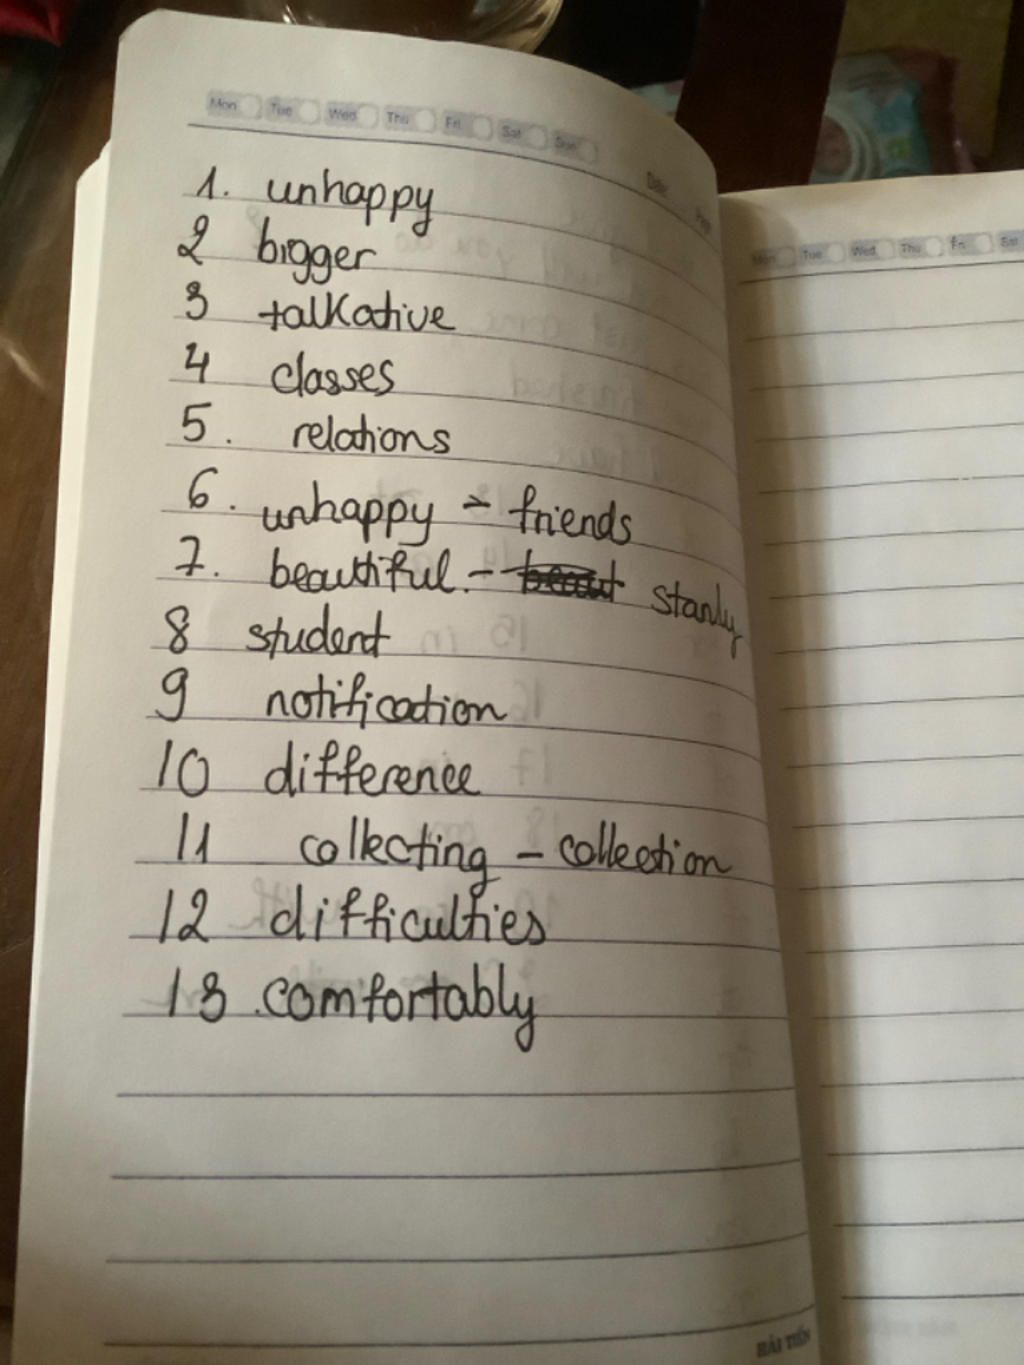 Mon Tue Wed Thu Fri Sat Sun
Date:
Page:
1. unhappy
2 bigger
3 talkative
4 classes
5. relations
6. unhappy - friends
7. beautiful. - stanly
8 student
9 notification
10 difference
11 collecting - collection
12 difficulties
13 comfortably
HẢI TIẾN
Mon Tue Wed Thu Fri Sat